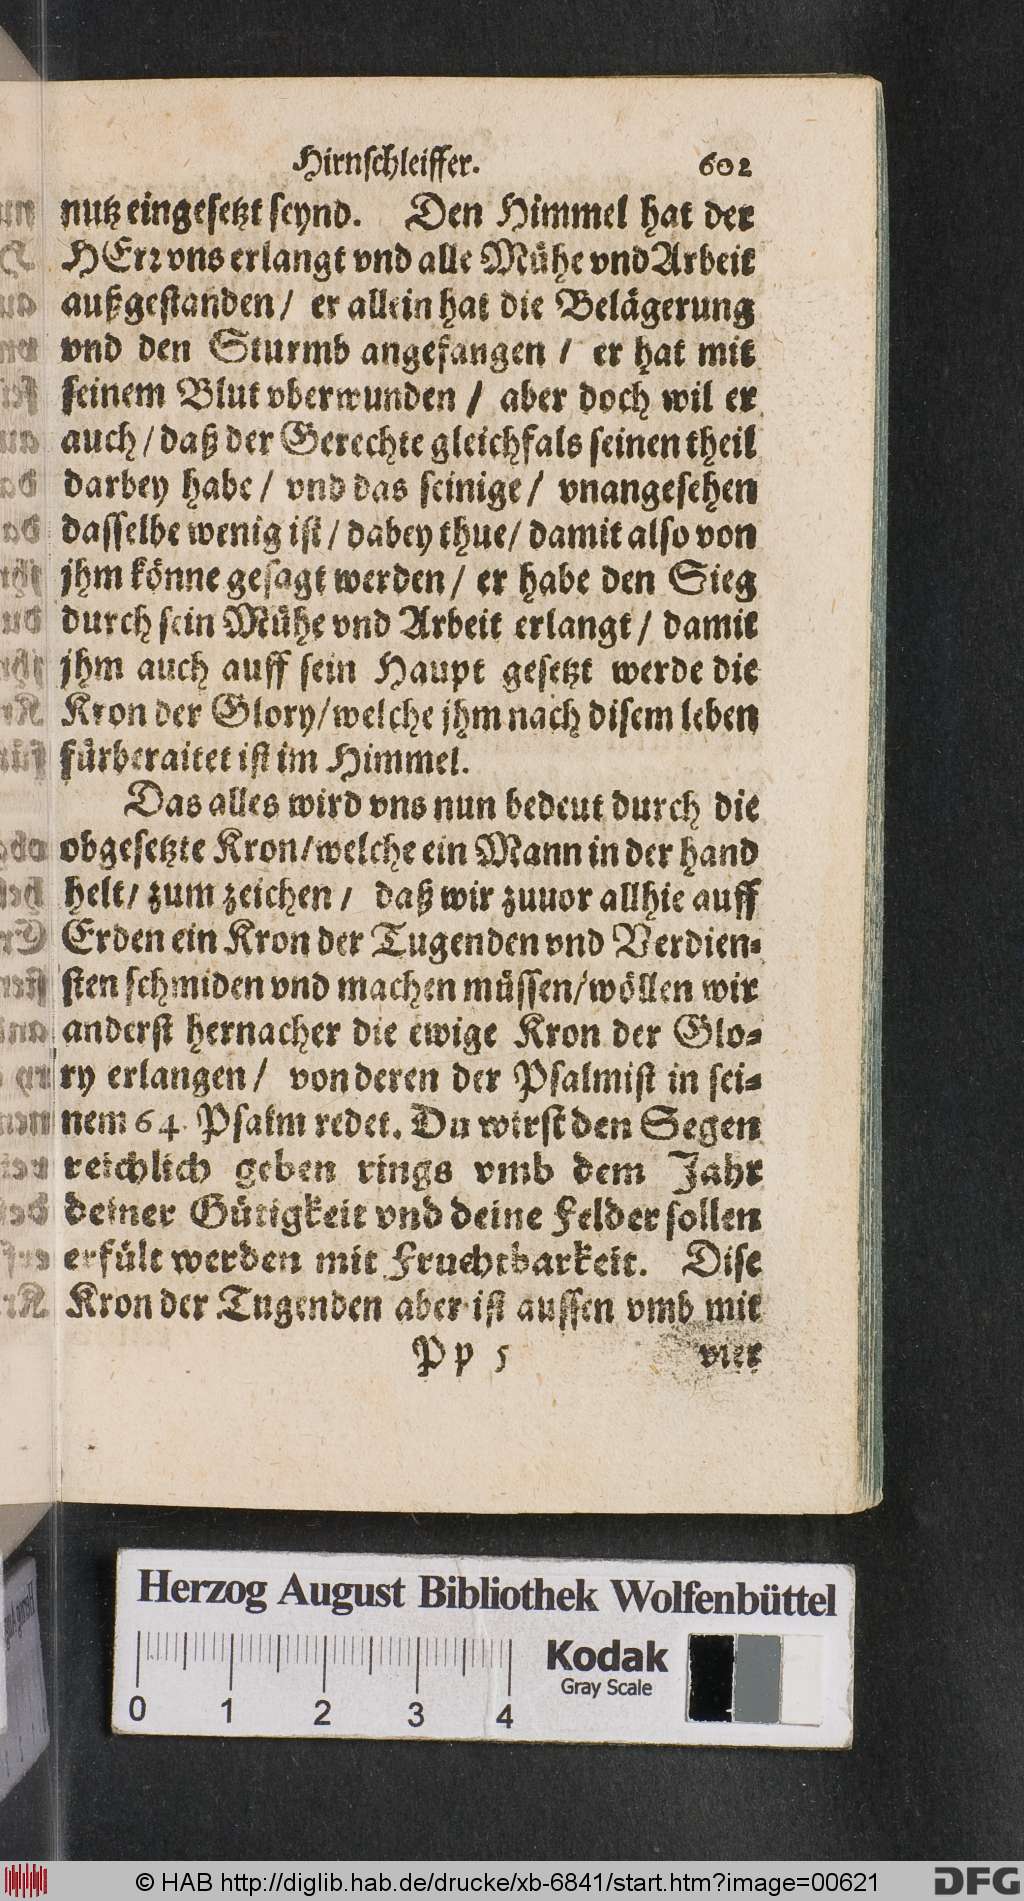 Hirnschleiffer. 602
nutz eingesetzt seynd. Den Himmel hat der
HErr vns erlangt vnd alle Mühe vnd Arbeit
außgestanden / er allein hat die Belägerung
vnd den Sturmb angefangen / er hat mit
seinem Blut vberwunden / aber doch wil er
auch / daß der Gerechte gleichfals seinen theil
darbey habe / vnd das seinige / vnangesehen
dasselbe wenig ist / dabey thue / damit also von
jhm könne gesagt werden / er habe den Sieg
durch sein Mühe vnd Arbeit erlangt / damit
jhm auch auff sein Haupt gesetzt werde die
Kron der Glory / welche jhm nach disem leben
fürberaitet ist im Himmel.
Das alles wird vns nun bedeut durch die
obgesetzte Kron / welche ein Mann in der hand
helt / zum zeichen / daß wir zuuor allhie auff
Erden ein Kron der Tugenden vnd Verdien-
sten schmiden vnd machen müssen / wöllen wir
anderst hernacher die ewige Kron der Glo-
ry erlangen / von deren der Psalmist in sei-
nem 64. Psalm redet. Du wirst den Segen
reichlich geben rings vmb dem Jahr
deiner Gütigkeit vnd deine Felder sollen
erfült werden mit Fruchtbarkeit. Dise
Kron der Tugenden aber ist aussen vmb mit
Pp 5 vier
Herzog August Bibliothek Wolfenbüttel
0 1 2 3 4
Kodak
Gray Scale
© HAB http://diglib.hab.de/drucke/xb-6841/start.htm?image=00621
DFG